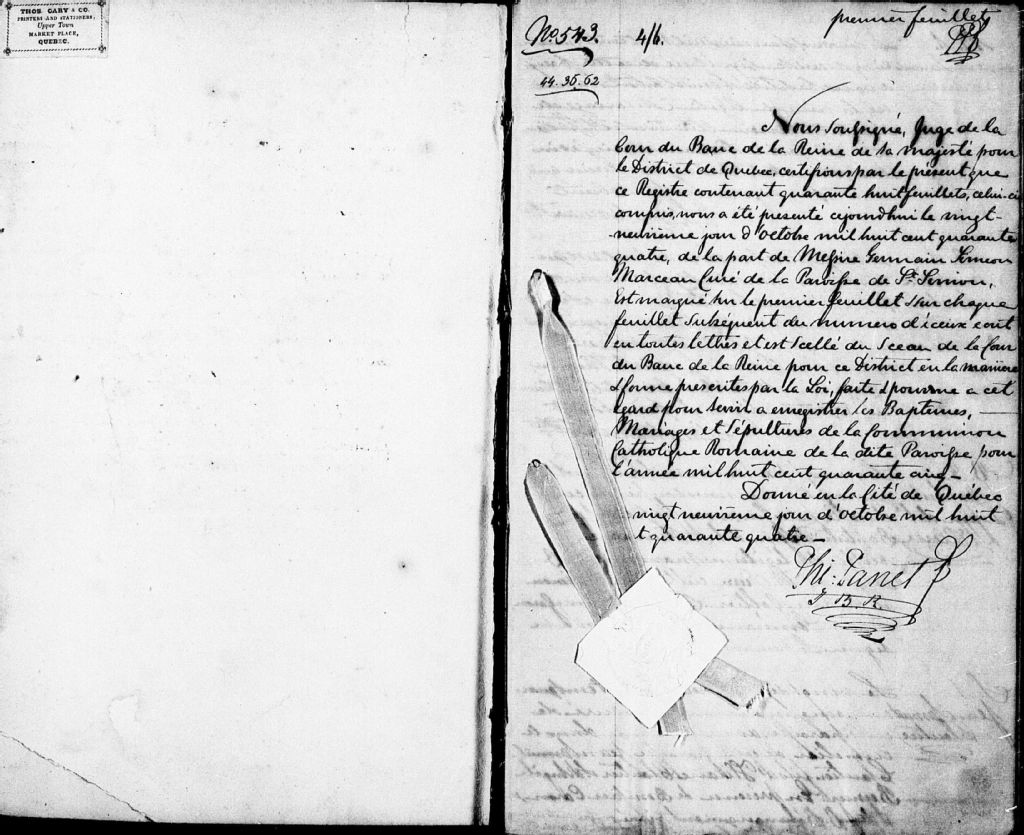 THOS. CARY & CO.
PRINTERS AND STATIONERS,
Upper Town
MARKET PLACE,
QUEBEC.
premier feuillet
No. 543.
4/6.
44. 36. 62
Nous soussigné, Juge de la
Cour du Banc de la Reine de sa majesté pour
le District de Quebec, certifions par le présent que
ce Registre contenant quarante huit feuillets, celui-ci
compris, nous a été présenté cejourdhui le vingt-
neuvième jour d'octobre mil huit cent quarante
quatre, de la part de Messire Germain Simeon
Marceau Curé de la Paroisse de St. Simon,
Est marqué sur le premier feuillet & sur chaque
feuillet subséquent du numero d'iceux écrit
en toutes lettres et est scellé du Sceau de la Cour
du Banc de la Reine pour ce District en la manière
& forme prescrites par la Loi, faite & pourvue a cet
égard pour servir a enregistrer les Baptemes,
Mariages et Sépultures de la Communion
Catholique Romaine de la dite Paroisse pour
l'année mil huit cent quarante cinq –
Donné en la Cité de Québec
vingt neuvième jour d'octobre mil huit
t quarante quatre –
Phi: Panet
J. B. R.